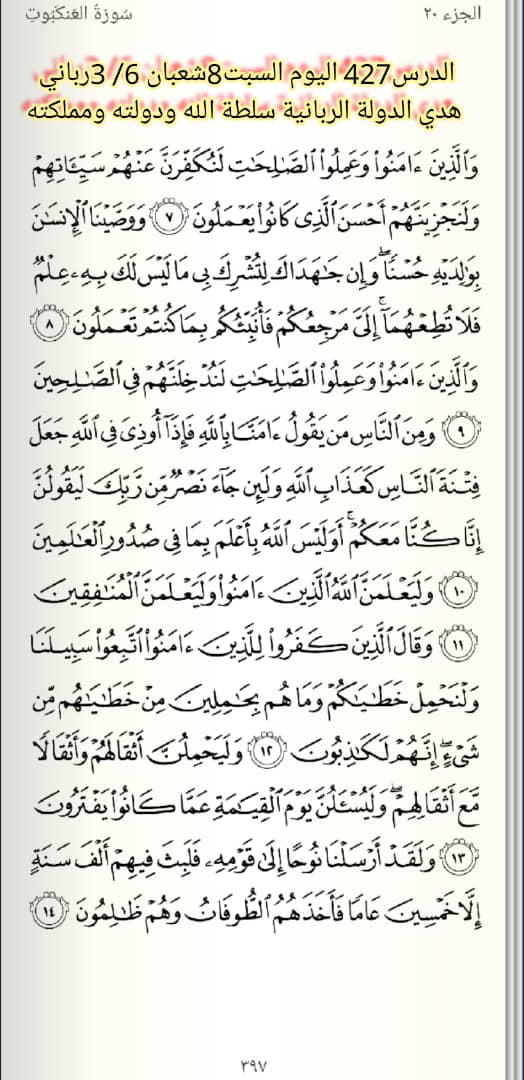 الجزء ٢٠
سُورَةُ العَنكَبُوتِ
الدرس427 اليوم السبت8شعبان 6/ 3رباني
هدي الدولة الربانية سلطة الله ودولته ومملكته
وَٱلَّذِينَ ءَامَنُوا۟ وَعَمِلُوا۟ ٱلصَّـٰلِحَـٰتِ لَنُكَفِّرَنَّ عَنْهُمْ سَيِّـَٔاتِهِمْ
وَلَنَجْزِيَنَّهُمْ أَحْسَنَ ٱلَّذِى كَانُوا۟ يَعْمَلُونَ ٧ وَوَصَّيْنَا ٱلْإِنسَـٰنَ
بِوَٰلِدَيْهِ حُسْنًا ۖ وَإِن جَـٰهَدَاكَ لِتُشْرِكَ بِى مَا لَيْسَ لَكَ بِهِۦ عِلْمٌ
فَلَا تُطِعْهُمَآ ۚ إِلَىَّ مَرْجِعُكُمْ فَأُنَبِّئُكُم بِمَا كُنتُمْ تَعْمَلُونَ ٨
وَٱلَّذِينَ ءَامَنُوا۟ وَعَمِلُوا۟ ٱلصَّـٰلِحَـٰتِ لَنُدْخِلَنَّهُمْ فِى ٱلصَّـٰلِحِينَ
٩ وَمِنَ ٱلنَّاسِ مَن يَقُولُ ءَامَنَّا بِٱللَّهِ فَإِذَآ أُوذِىَ فِى ٱللَّهِ جَعَلَ
فِتْنَةَ ٱلنَّاسِ كَعَذَابِ ٱللَّهِ وَلَئِن جَآءَ نَصْرٌ مِّن رَّبِّكَ لَيَقُولُنَّ
إِنَّا كُنَّا مَعَكُمْ ۚ أَوَلَيْسَ ٱللَّهُ بِأَعْلَمَ بِمَا فِى صُدُورِ ٱلْعَـٰلَمِينَ
١٠ وَلَيَعْلَمَنَّ ٱللَّهُ ٱلَّذِينَ ءَامَنُوا۟ وَلَيَعْلَمَنَّ ٱلْمُنَـٰفِقِينَ
١١ وَقَالَ ٱلَّذِينَ كَفَرُوا۟ لِلَّذِينَ ءَامَنُوا۟ ٱتَّبِعُوا۟ سَبِيلَنَا
وَلْنَحْمِلْ خَطَـٰيَـٰكُمْ وَمَا هُم بِحَـٰمِلِينَ مِنْ خَطَـٰيَـٰهُم مِّن
شَىْءٍ ۖ إِنَّهُمْ لَكَـٰذِبُونَ ١٢ وَلَيَحْمِلُنَّ أَثْقَالَهُمْ وَأَثْقَالًا
مَّعَ أَثْقَالِهِمْ ۖ وَلَيُسْـَٔلُنَّ يَوْمَ ٱلْقِيَـٰمَةِ عَمَّا كَانُوا۟ يَفْتَرُونَ
١٣ وَلَقَدْ أَرْسَلْنَا نُوحًا إِلَىٰ قَوْمِهِۦ فَلَبِثَ فِيهِمْ أَلْفَ سَنَةٍ
إِلَّا خَمْسِينَ عَامًا فَأَخَذَهُمُ ٱلطُّوفَانُ وَهُمْ ظَـٰلِمُونَ ١٤
٣٩٧